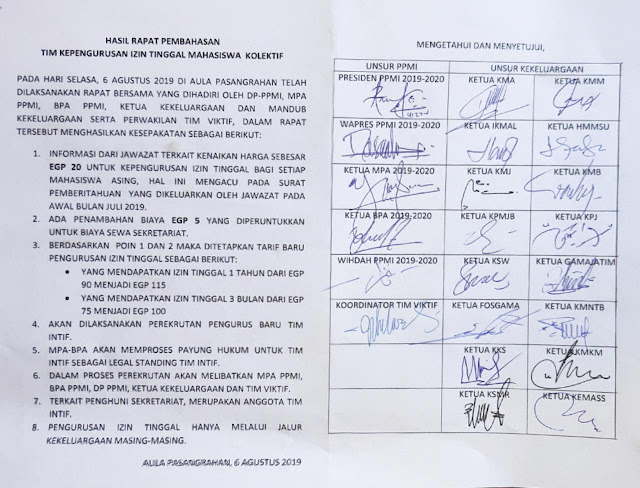 HASIL RAPAT PEMBAHASAN
TIM KEPENGURUSAN IZIN TINGGAL MAHASISWA KOLEKTIF
PADA HARI SELASA, 6 AGUSTUS 2019 DI AULA PASANGRAHAN TELAH
DILAKSANAKAN RAPAT BERSAMA YANG DIHADIRI OLEH DP-PPMI, MPA
PPMI, BPA PPMI, KETUA KEKELUARGAAN DAN MANDUB
KEKELUARGAAN SERTA PERWAKILAN TIM VIKTIF, DALAM RAPAT
TERSEBUT MENGHASILKAN KESEPAKATAN SEBAGAI BERIKUT:
1. INFORMASI DARI JAWAZAT TERKAIT KENAIKAN HARGA SEBESAR
EGP 20 UNTUK KEPENGURUSAN IZIN TINGGAL BAGI SETIAP
MAHASISWA ASING, HAL INI MENGACU PADA SURAT
PEMBERITAHUAN YANG DIKELUARKAN OLEH JAWAZAT PADA
AWAL BULAN JULI 2019.
2. ADA PENAMBAHAN BIAYA EGP 5 YANG DIPERUNTUKKAN
UNTUK BIAYA SEWA SEKRETARIAT.
3. BERDASARKAN POIN 1 DAN 2 MAKA DITETAPKAN TARIF BARU
PENGURUSAN IZIN TINGGAL SEBAGAI BERIKUT:
• YANG MENDAPATKAN IZIN TINGGAL 1 TAHUN DARI EGP
90 MENJADI EGP 115
• YANG MENDAPATKAN IZIN TINGGAL 3 BULAN DARI EGP
75 MENJADI EGP 100
4. AKAN DILAKSANAKAN PEREKRUTAN PENGURUS BARU TIM
INTIF.
5. MPA-BPA AKAN MEMPROSES PAYUNG HUKUM UNTUK TIM
INTIF SEBAGAI LEGAL STANDING TIM INTIF.
6. DALAM PROSES PEREKRUTAN AKAN MELIBATKAN MPA PPMI,
BPA PPMI, DP PPMI, KETUA KEKELUARGAAN DAN TIM VIKTIF.
7. TERKAIT PENGHUNI SEKRETARIAT, MERUPAKAN ANGGOTA TIM
INTIF.
8. PENGURUSAN IZIN TINGGAL HANYA MELALUI JALUR
KEKELUARGAAN MASING-MASING.
AULA PASANGRAHAN, 6 AGUSTUS 2019
MENGETAHUI DAN MENYETUJUI,
UNSUR PPMI UNSUR KEKELUARGAAN
PRESIDEN PPMI 2019-2020 KETUA KMA KETUA KMM
WAPRES PPMI 2019-2020 KETUA IKMAL KETUA HMMSU
KETUA MPA 2019-2020 KETUA KMJ KETUA KMB
KETUA BPA 2019-2020 KETUA KPMJB KETUA KPJ
WIHDAH PPMI 2019-2020 KETUA KSW KETUA GAMAJATIM
KOORDINATOR TIM VIKTIF KETUA FOSGAMA KETUA KMNTB
KETUA KKS KETUA KMKM
KETUA KSMR KETUA KEMASS